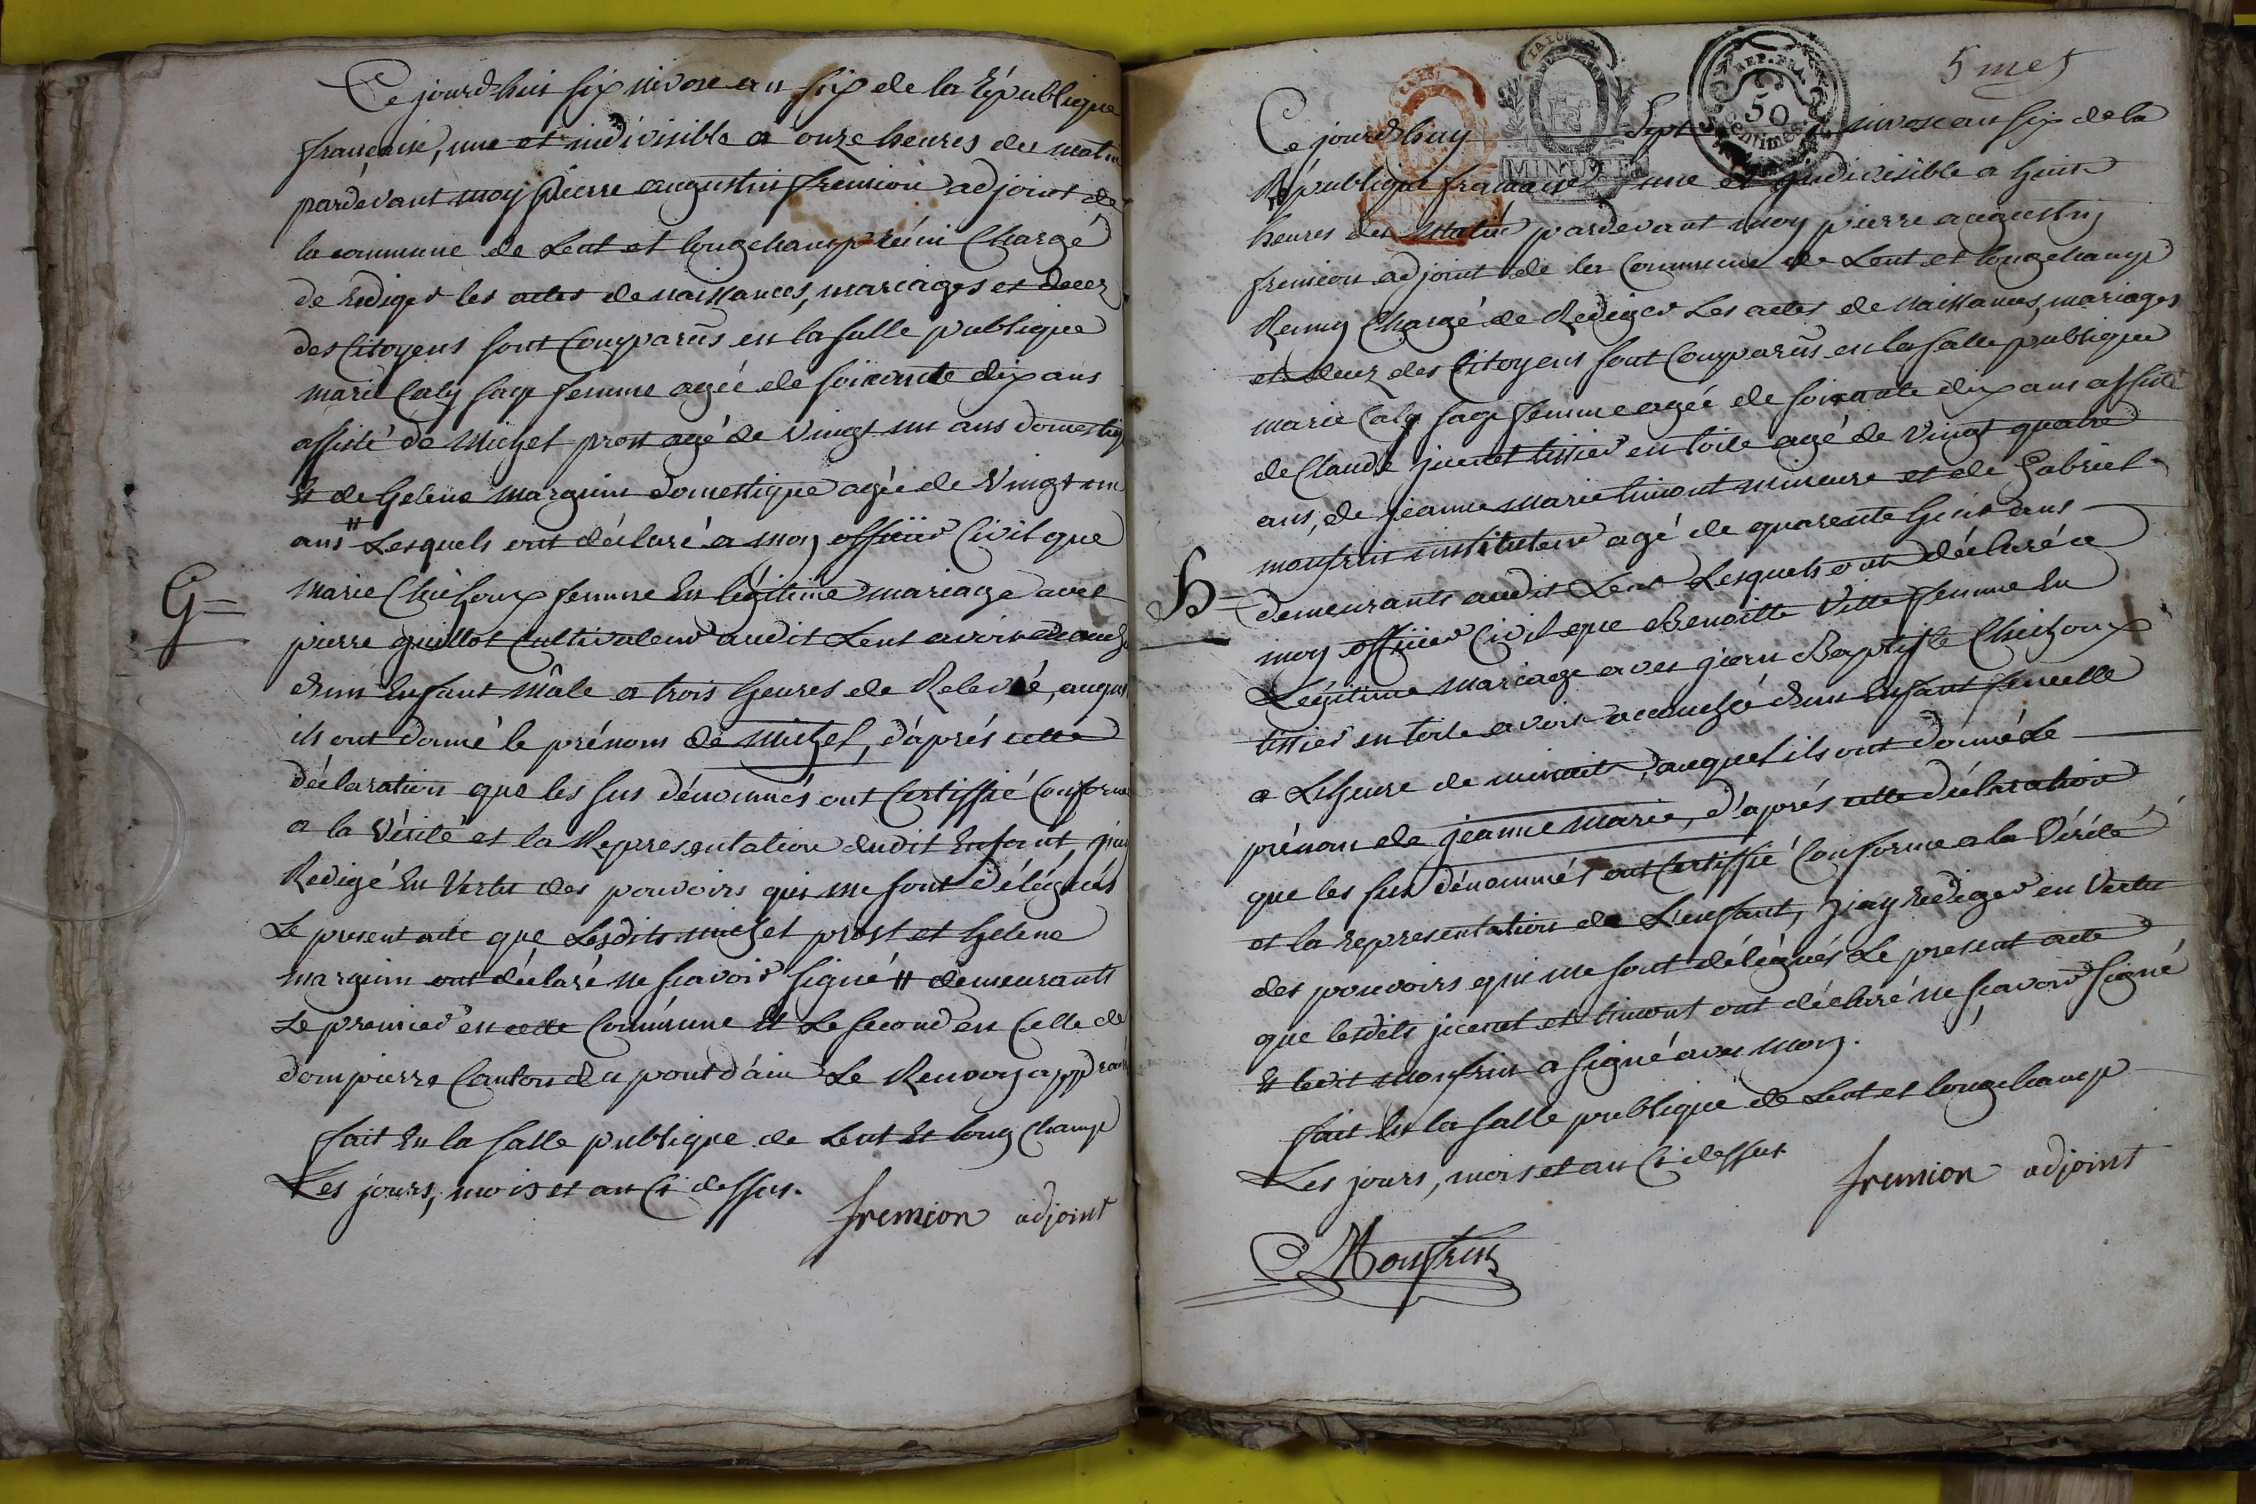 Ce jourd'huis six nivose an six de la République
française, une et indivisible a onze heures du matin
pardevant moy pierre augustin fremion adjoint de
la commune de Lent et longchamp réüni Chargé
de Rediger les actes de naissances, mariages et decez
des Citoyens sont Comparûs en la salle publique
marie Caly sage femme agée de soixante dix ans
assisté de Michel prost agé de Vingt un ans domestiq
Et de helene marguin domestique agée de Vingt un
ans " Lesquels ont déclaré a moy officier Civil que
G=
marie Chichoux femme En légitime mariage avec
pierre guillot Cultivateur audit Lent avoir accouché
d'un Enfant mâle a trois heures de Relevée, auquel
ils ont donné le prénom de Michel, d'après cette
déclaration que les sus dénommés ont Certiffié Conforme
a la Vérité et la Représentation dudit Enfant, j'ai
Redigé En Vertu des pouvoirs qui me sont délégués
Le present acte que Lesdits michel prost et helene
marguin ont déclaré ne sçavoir signé " demeurants
Le premier en cette Commune Et Le second en Celle de
dompierre Canton du pont d'ain Le Renvoy approuvé
fait En la salle publique de Lent Et long Champ
Les jours, mois et an Ci dessus.
fremion adjoint
5 mes
REP. FRA.
50
Centimes
MINUTE
Ce jourd'huy Sept nivose an six de la
République française une et indivisible a huit
heures du Matin pardevant moy pierre augustin
fremion adjoint de la Commune de Lent et longchamp
Remy Chargé de Rediger Les actes de naissances, mariages
et decez des Citoyens sont Comparûs en la salle publique
marie Caly sage femme agée de soixante dix ans assisté
de Claude juenet tissier en toile agé de Vingt quatre
ans, de jeanne marie timont mineure et de Gabriel
monfrin instituteur agé de quarente huit ans
H=
demeurants audit Lent Lesquels ont déclaré a
moy officier Civil que Benoitte Ville femme En
Légitime mariage avec jean Baptiste Chichoux
tissier en toile avoir accouché d'un Enfant femelle
a Lheure de minuit, auquel ils ont donné Le
prénom de jeanne marie, d'après cette déclaration
que les sus dénommés ont Certiffié Conforme a la Vérité
et la representation de L'enfant, j'ay rediger en Vertu
des pouvoirs qui me sont délégués Le present acte
que lesdits juenet et timont ont déclaré ne sçavoir signé
Et ledit monfrin a signé avec moy.
fait En la salle publique de Lent et longchamp
Les jours, mois et an Ci dessus
fremion adjoint
Monfrin